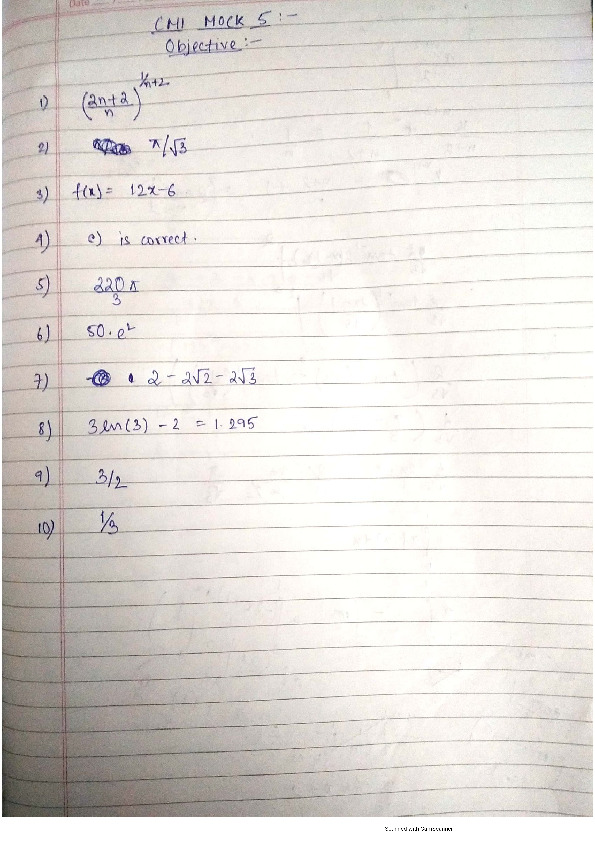 Date
CMI MOCK 5 :-
Objective :-
1) (2n+2/n)^1/n+2
2) π/√3
3) f(x) = 12x-6
4) c) is correct.
5) 220π/3
6) 50·e²
7) 2 - 2√2 - 2√3
8) 3ln(3) - 2 = 1.295
9) 3/2
10) 1/3
Scanned with CamScanner